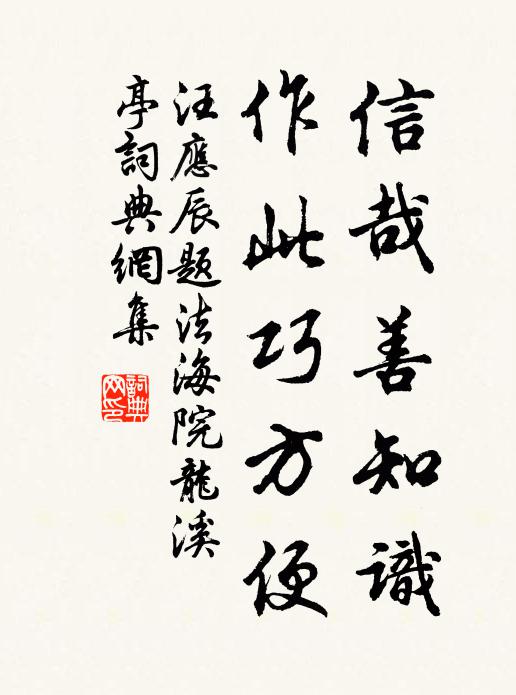 信哉善知識
作此巧方便
汪應辰題法海院龍溪
亭詞典網集
詞典
网印